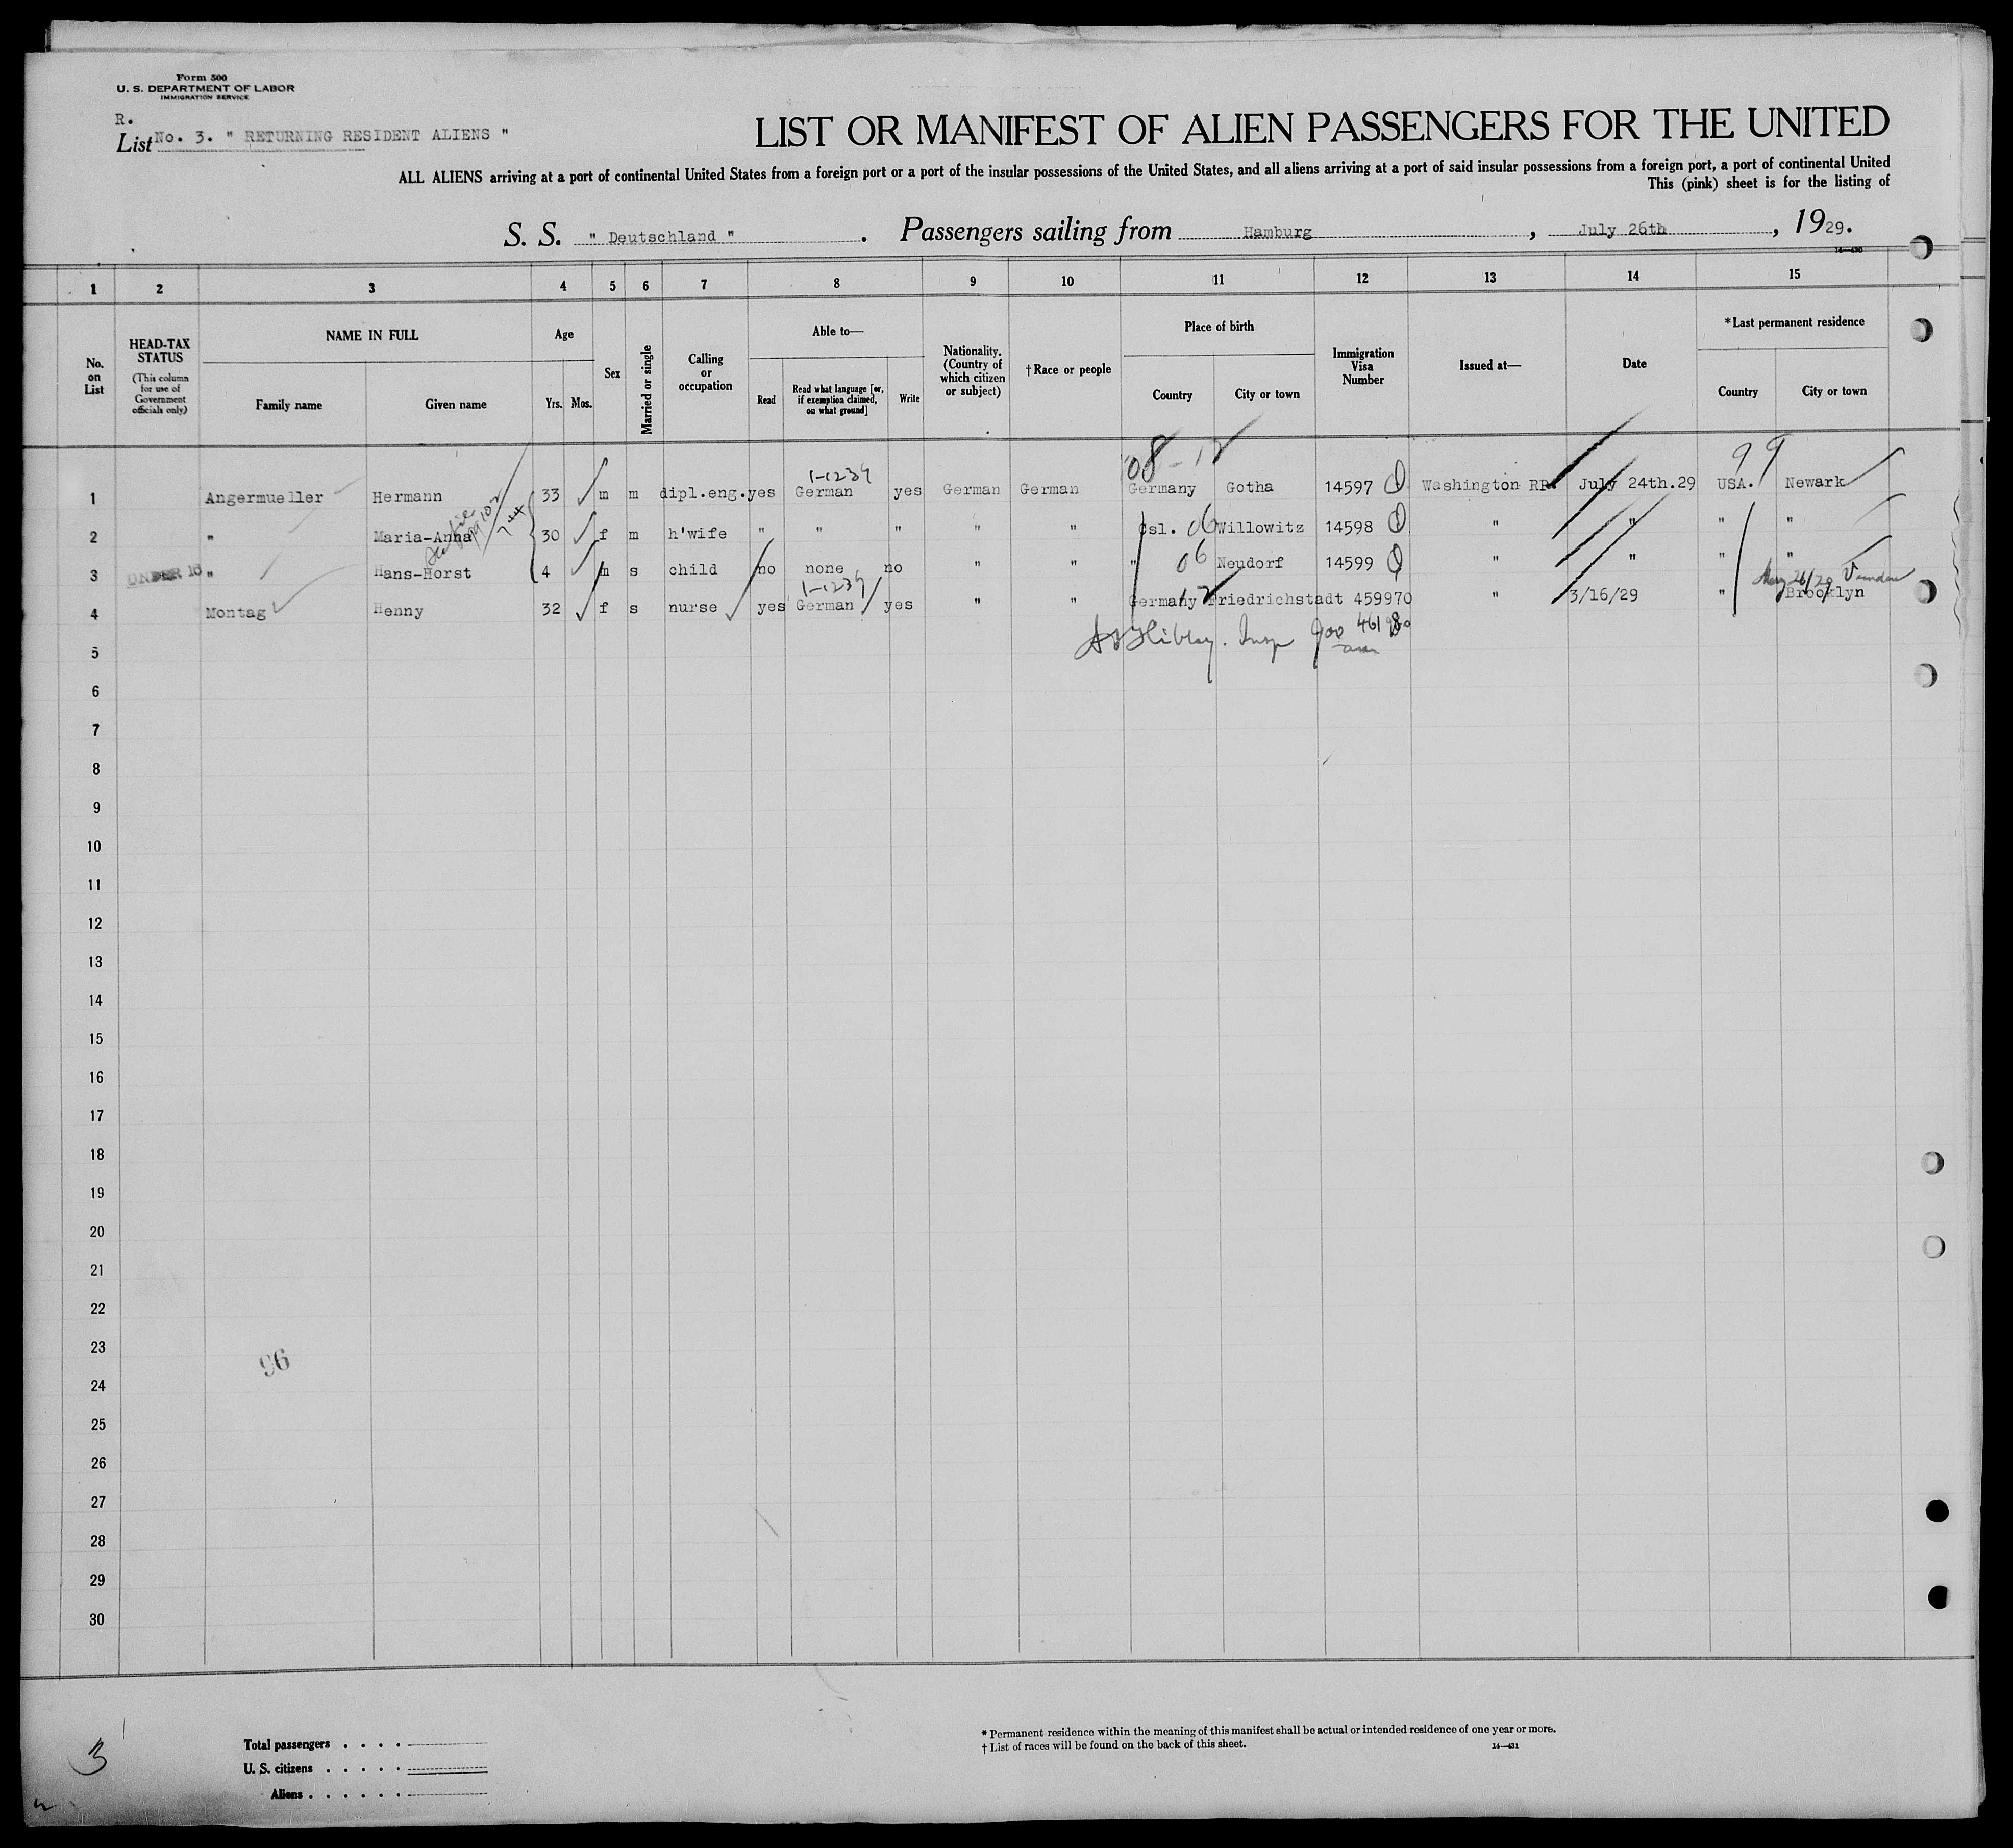 Form 500
U. S. DEPARTMENT OF LABOR
IMMIGRATION SERVICE
R.
List No. 3. " RETURNING RESIDENT ALIENS "
LIST OR MANIFEST OF ALIEN PASSENGERS FOR THE UNITED
ALL ALIENS arriving at a port of continental United States from a foreign port or a port of the insular possessions of the United States, and all aliens arriving at a port of said insular possessions from a foreign port, a port of continental United
This (pink) sheet is for the listing of
S. S. " Deutschland " . Passengers sailing from Hamburg , July 26th , 1929.
14—430
1 2 3 4 5 6 7 8 9 10 11 12 13 14 15
No. on List
HEAD-TAX STATUS (This column for use of Government officials only)
NAME IN FULL
Family name Given name
Age
Yrs. Mos.
Sex
Married or single
Calling or occupation
Able to—
Read Read what language [or, if exemption claimed, on what ground] Write
Nationality. (Country of which citizen or subject)
†Race or people
Place of birth
Country City or town
Immigration Visa Number
Issued at—
Date
*Last permanent residence
Country City or town
08-12 99
1-1239
1 Angermueller Hermann 33 m m dipl.eng. yes German yes German German Germany Gotha 14597 Washington RP. July 24th.29 USA. Newark
2 " Maria-Anna 30 f m h'wife " " " " " Csl. 06 Willowitz 14598 " " " "
3 UNDER 16 " Hans-Horst 4 m s child no none no " " " 06 Neudorf 14599 " " " "
1-1239 12
4 Montag Henny 32 f s nurse yes German yes " " Germany Friedrichstadt 459970 " 3/16/29 " Brooklyn
5
6
7
8
9
10
11
12
13
14
15
16
17
18
19
20
21
22
23
96
24
25
26
27
28
29
30
3
Total passengers . . . .
U. S. citizens . . . . .
Aliens . . . . . .
* Permanent residence within the meaning of this manifest shall be actual or intended residence of one year or more.
† List of races will be found on the back of this sheet.
14—431